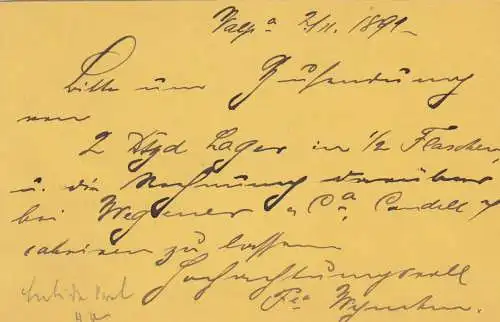 Valp.a 2/11. 1891
Bitte um Zusendung
von
2 Dtzd Lager in 1/2 Flaschen
u. die Rechnung darüber
bei Wegener & Ca.
zu lassen
Hochachtungsvoll